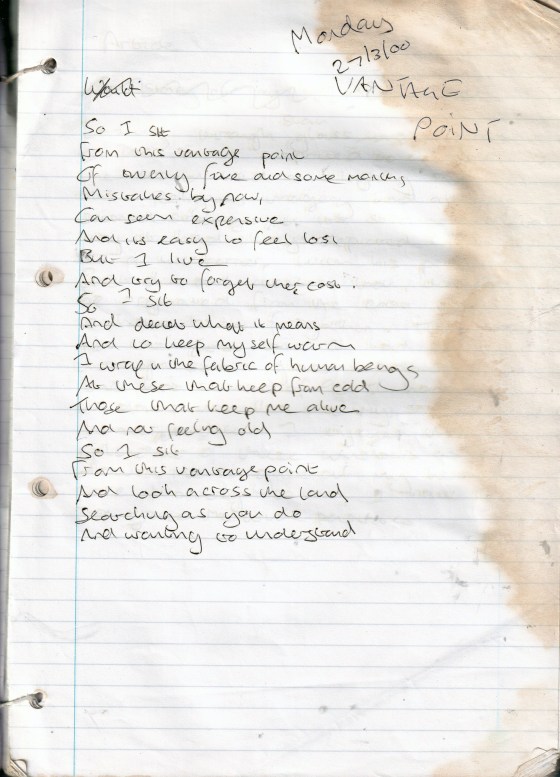 Monday
27/3/00
VANTAGE
POINT
So I sit
From this vantage point
Of twenty five and some months,
Mistakes by now,
Can seem expensive
And its easy to feel lost
But I live
And try to forget the cost.
So I sit
And decide what it means
And to keep myself warm
I wrap in the fabric of human beings
At these that keep from cold
Those that keep me alive
And not feeling old
So I sit
From this vantage point
And look across the land
Searching as you do
And wanting to understand